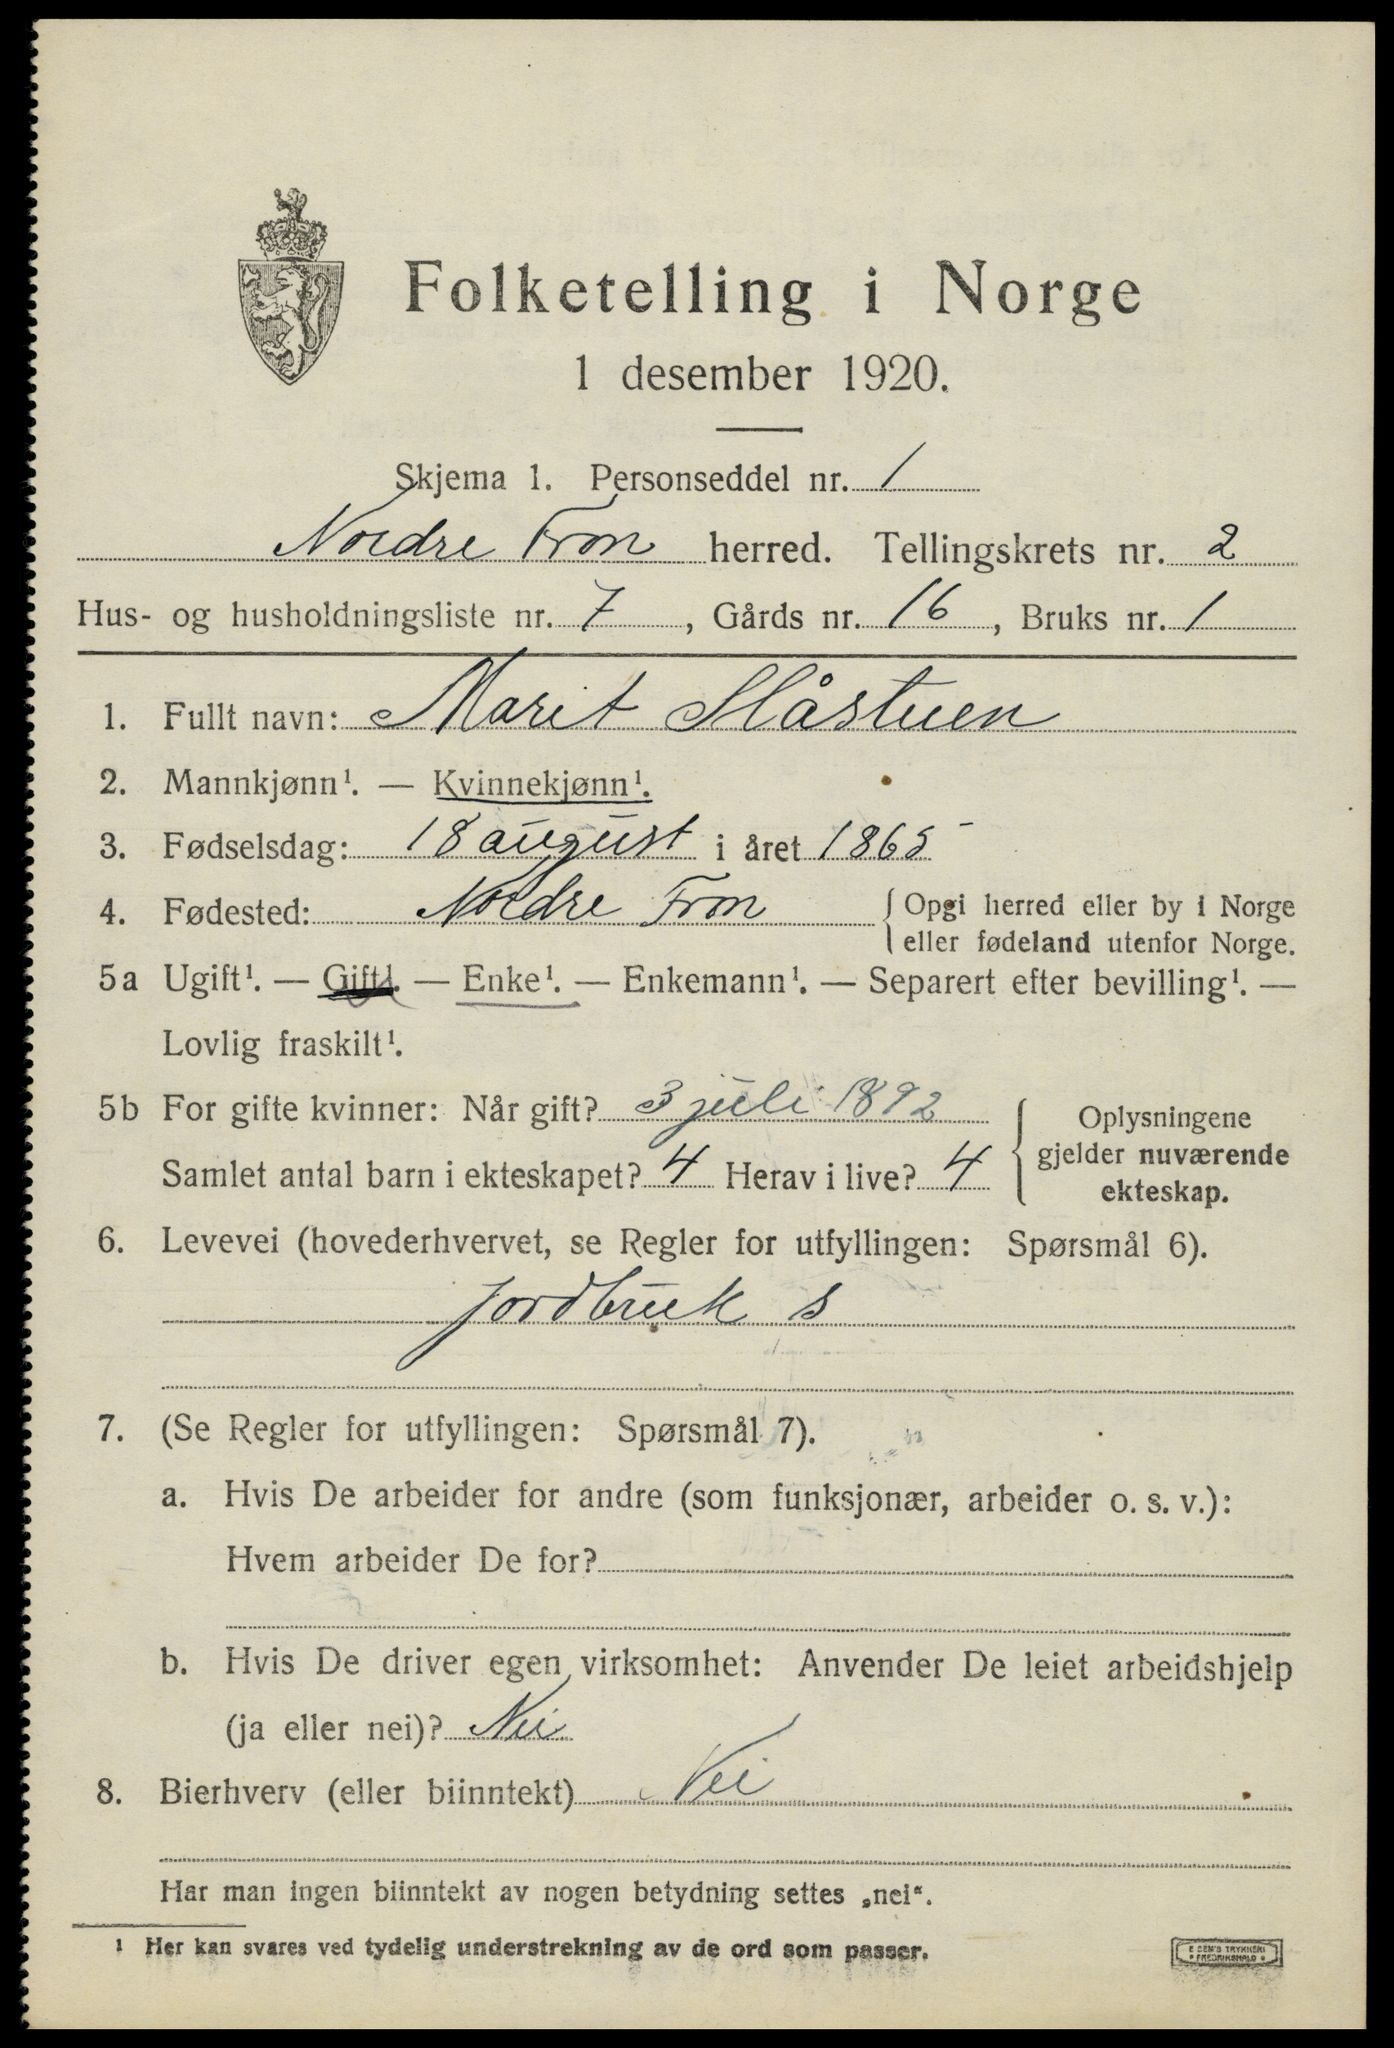 Folketelling i Norge
1 desember 1920.
Skjema 1. Personseddel nr. 1
Nordre Fron herred. Tellingskrets nr. 2
Hus- og husholdningsliste nr. 7, Gårds nr. 16, Bruks nr. 1
1. Fullt navn: Marit Slåstuen
2. Mannkjønn¹. — Kvinnekjønn¹.
3. Fødselsdag: 18 august i året 1865
4. Fødested: Nordre Fron { Opgi herred eller by i Norge
eller fødeland utenfor Norge.
5a Ugift¹. — Gift¹. — Enke¹. — Enkemann¹. — Separert efter bevilling¹. —
Lovlig fraskilt¹.
5b For gifte kvinner: Når gift? 3 juli 1892
Samlet antal barn i ekteskapet? 4 Herav i live? 4
{ Oplysningene
gjelder nuværende
ekteskap.
6. Levevei (hovederhvervet, se Regler for utfyllingen: Spørsmål 6).
Jordbruk s
7. (Se Regler for utfyllingen: Spørsmål 7).
a. Hvis De arbeider for andre (som funksjonær, arbeider o. s. v.):
Hvem arbeider De for?
b. Hvis De driver egen virksomhet: Anvender De leiet arbeidshjelp
(ja eller nei)? Nei
8. Bierhverv (eller biinntekt) Nei
Har man ingen biinntekt av nogen betydning settes „nei“.
¹ Her kan svares ved tydelig understrekning av de ord som passer.
TRYKKERI
FREDRIKSHALD